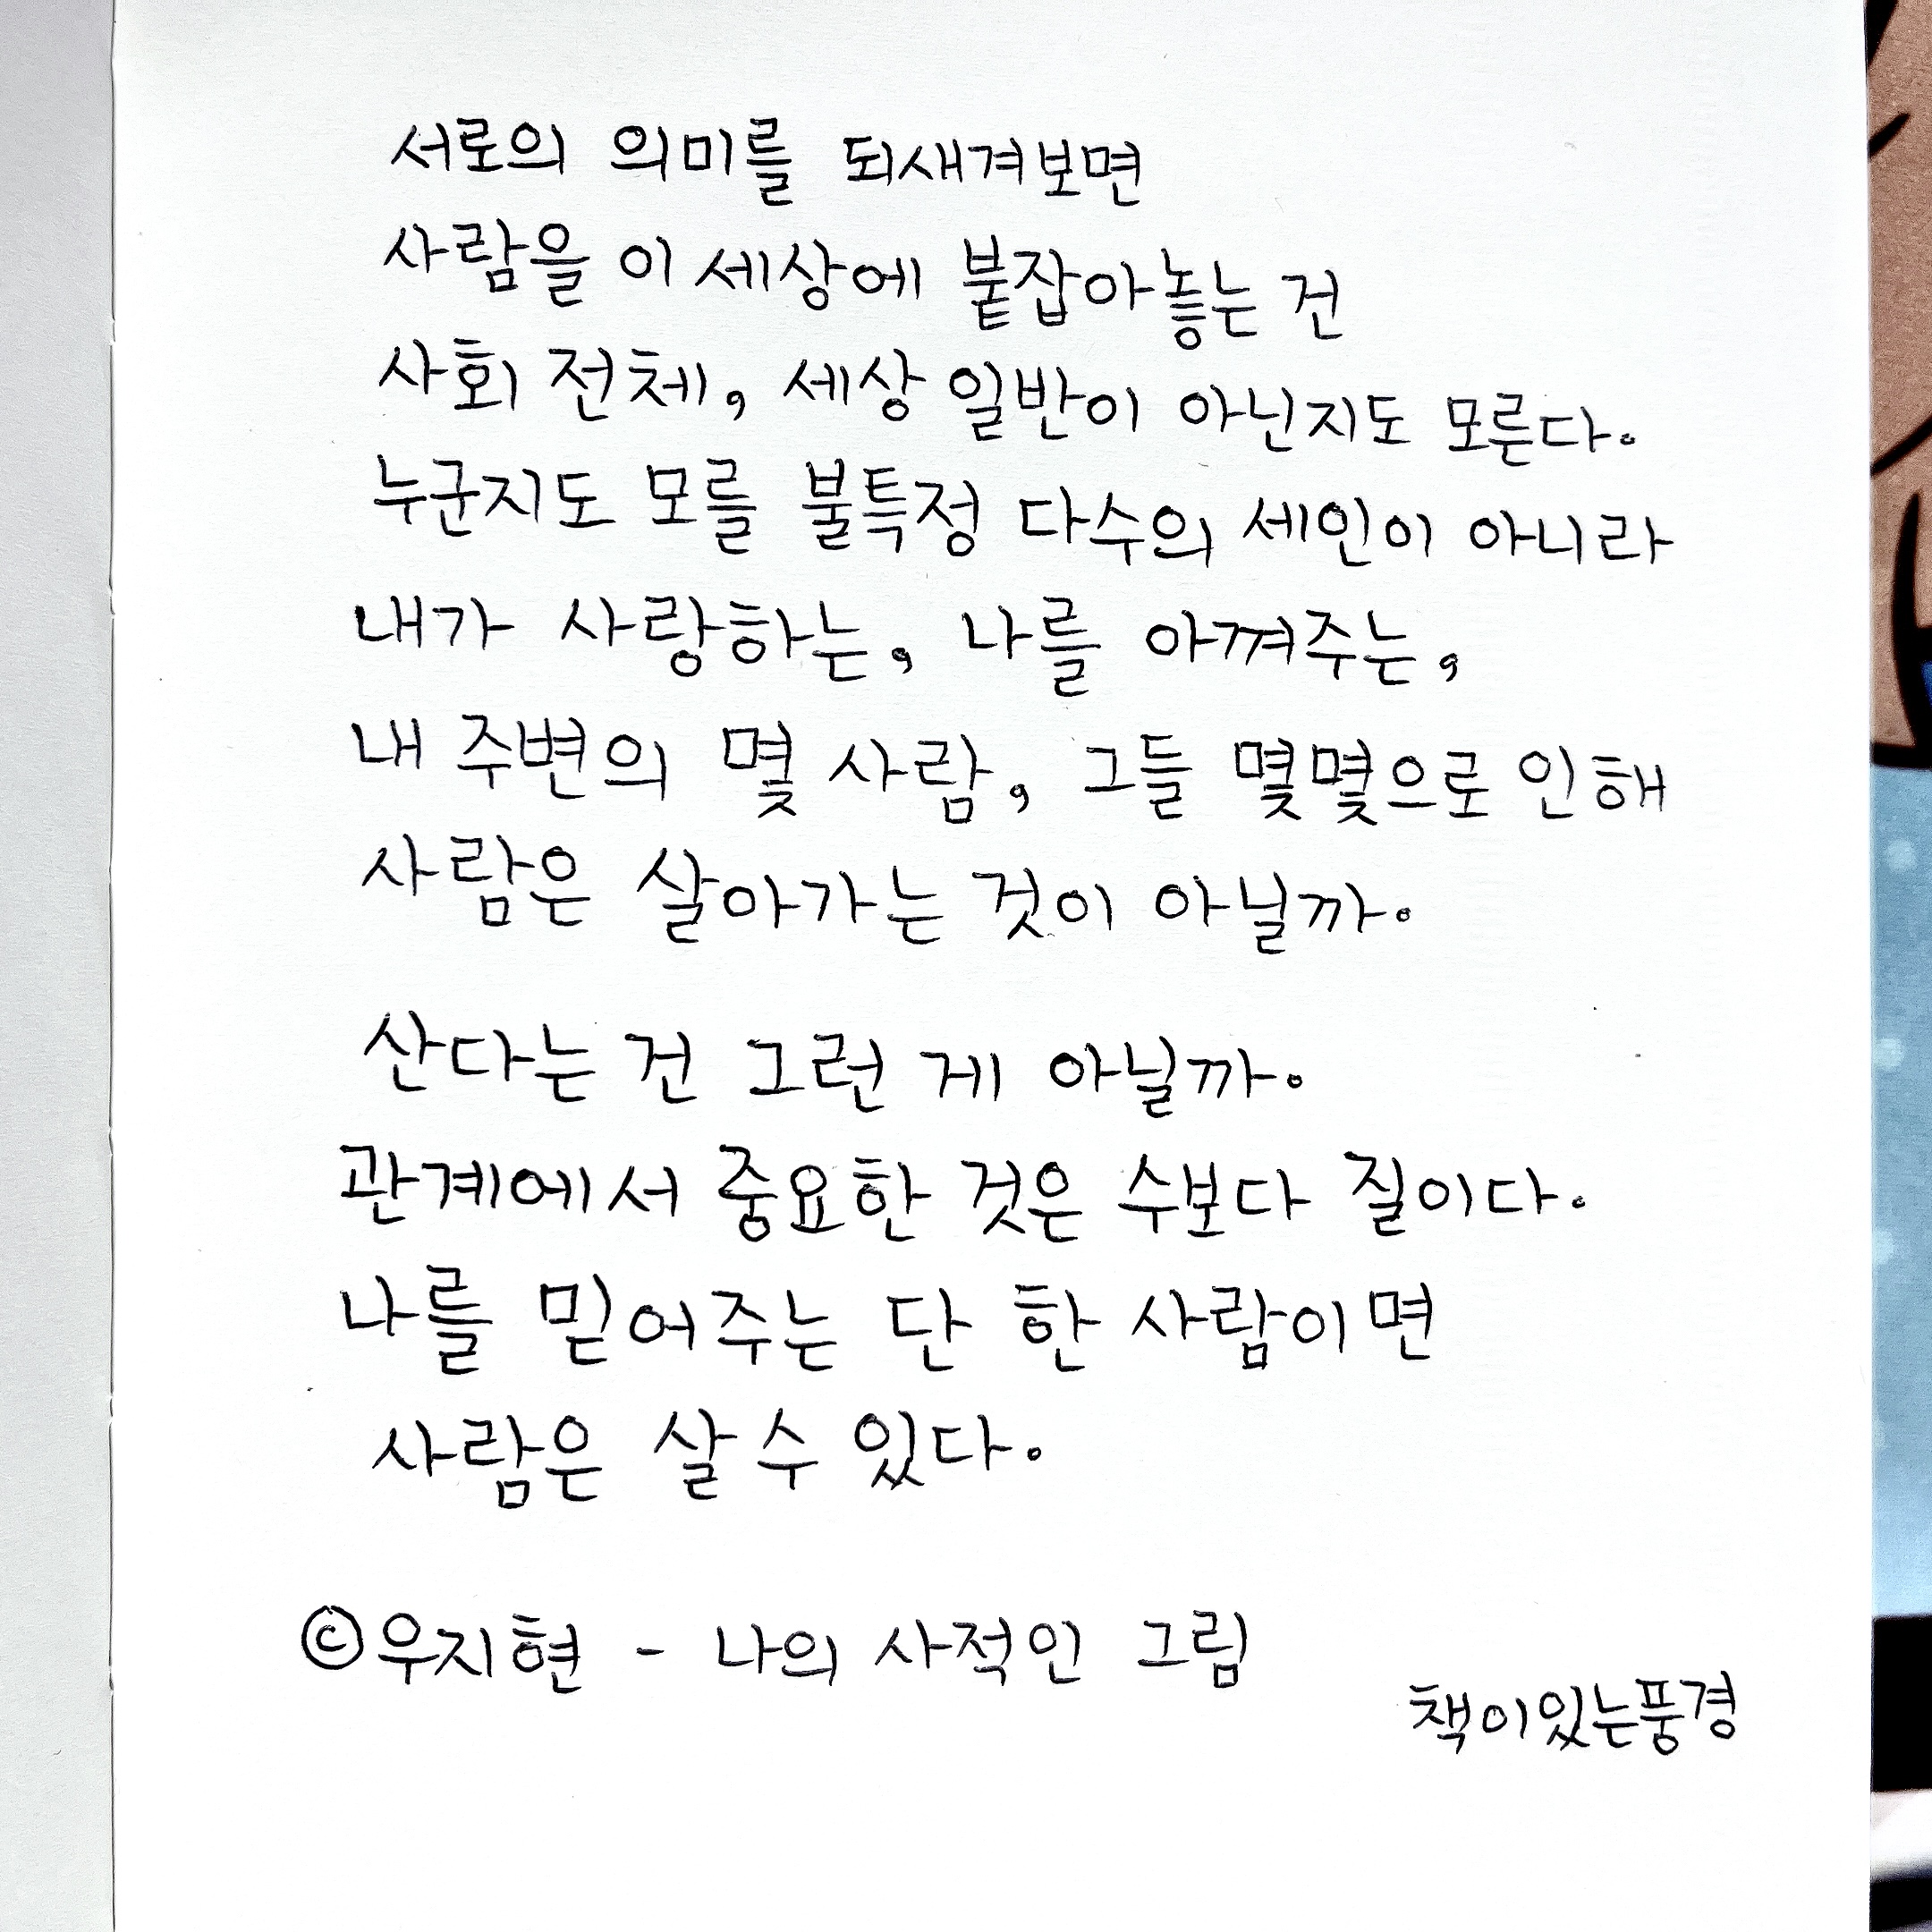 서로의 의미를 되새겨보면
사람을 이 세상에 붙잡아놓는 건
사회 전체, 세상 일반이 아닌지도 모른다.
누군지도 모를 불특정 다수의 세인이 아니라
내가 사랑하는, 나를 아껴주는,
내 주변의 몇 사람, 그들 몇몇으로 인해
사람은 살아가는 것이 아닐까.
산다는 건 그런 게 아닐까.
관계에서 중요한 것은 수보다 질이다.
나를 믿어주는 단 한 사람이면
사람은 살 수 있다.
©우지현 - 나의 사적인 그림
책이있는풍경